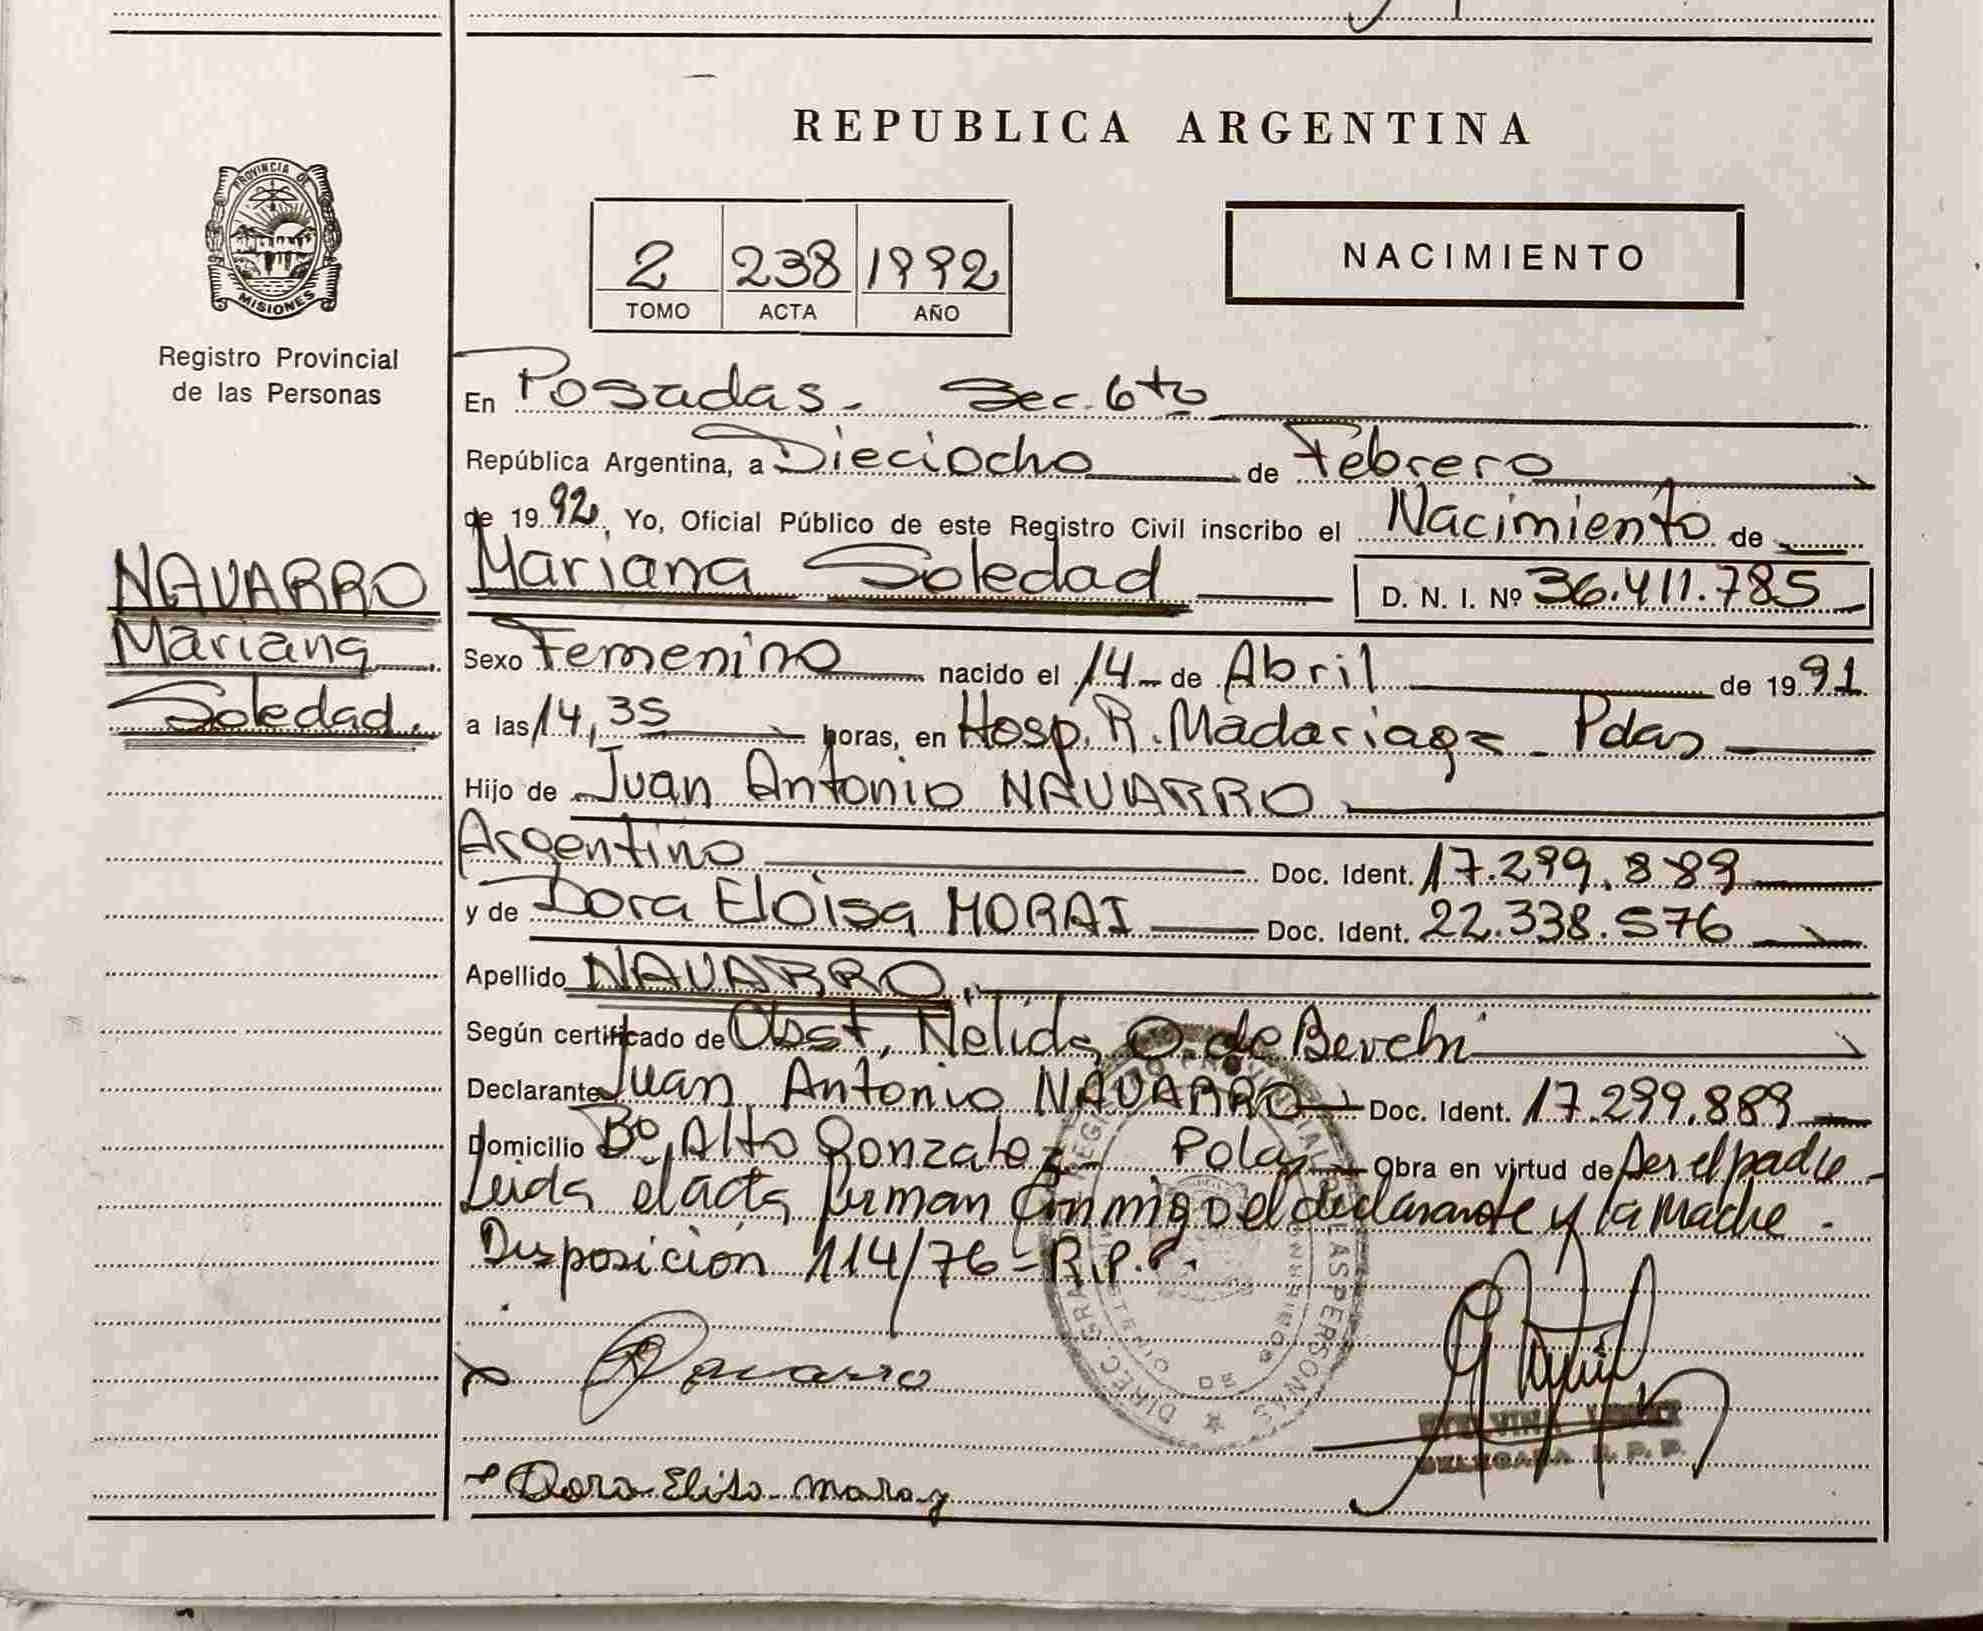 REPUBLICA ARGENTINA
PROVINCIA DE
MISIONES
Registro Provincial
de las Personas
2 238 1992
TOMO ACTA AÑO
NACIMIENTO
NAVARRO
Mariana
Soledad.
En Posadas - Sec. 6to
República Argentina, a Dieciocho de Febrero
de 1992, Yo, Oficial Público de este Registro Civil inscribo el Nacimiento de
Mariana Soledad D. N. I. Nº 36.411.785
Sexo Femenino nacido el 14 de Abril de 1991
a las 14,35 horas, en Hosp. R. Madariaga - Pdas
Hijo de Juan Antonio NAVARRO
Argentino Doc. Ident. 17.299.889
y de Dora Eloisa MORAI Doc. Ident. 22.338.576
Apellido NAVARRO
Según certificado de Obst, Nélida O. de
Declarante Juan Antonio NAVARRO Doc. Ident. 17.299.889
Domicilio Bº Alto Gonzalez - Obra en virtud de ser el padre
Leida el acta firman conmigo el declarante y la madre.
Disposición 114/76 - R.P.P.
Navarro
Dora Elisa Moray
DELEGADA R. P. P.